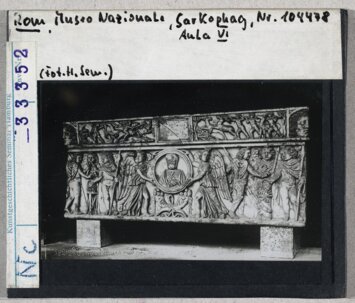 Rom, Museo Nazionale, Sarkophag, Nr. 104478
Aula VI
(Fot. H. Sem.)
33352
Kunstgeschichtliches Seminar Hamburg
Nc